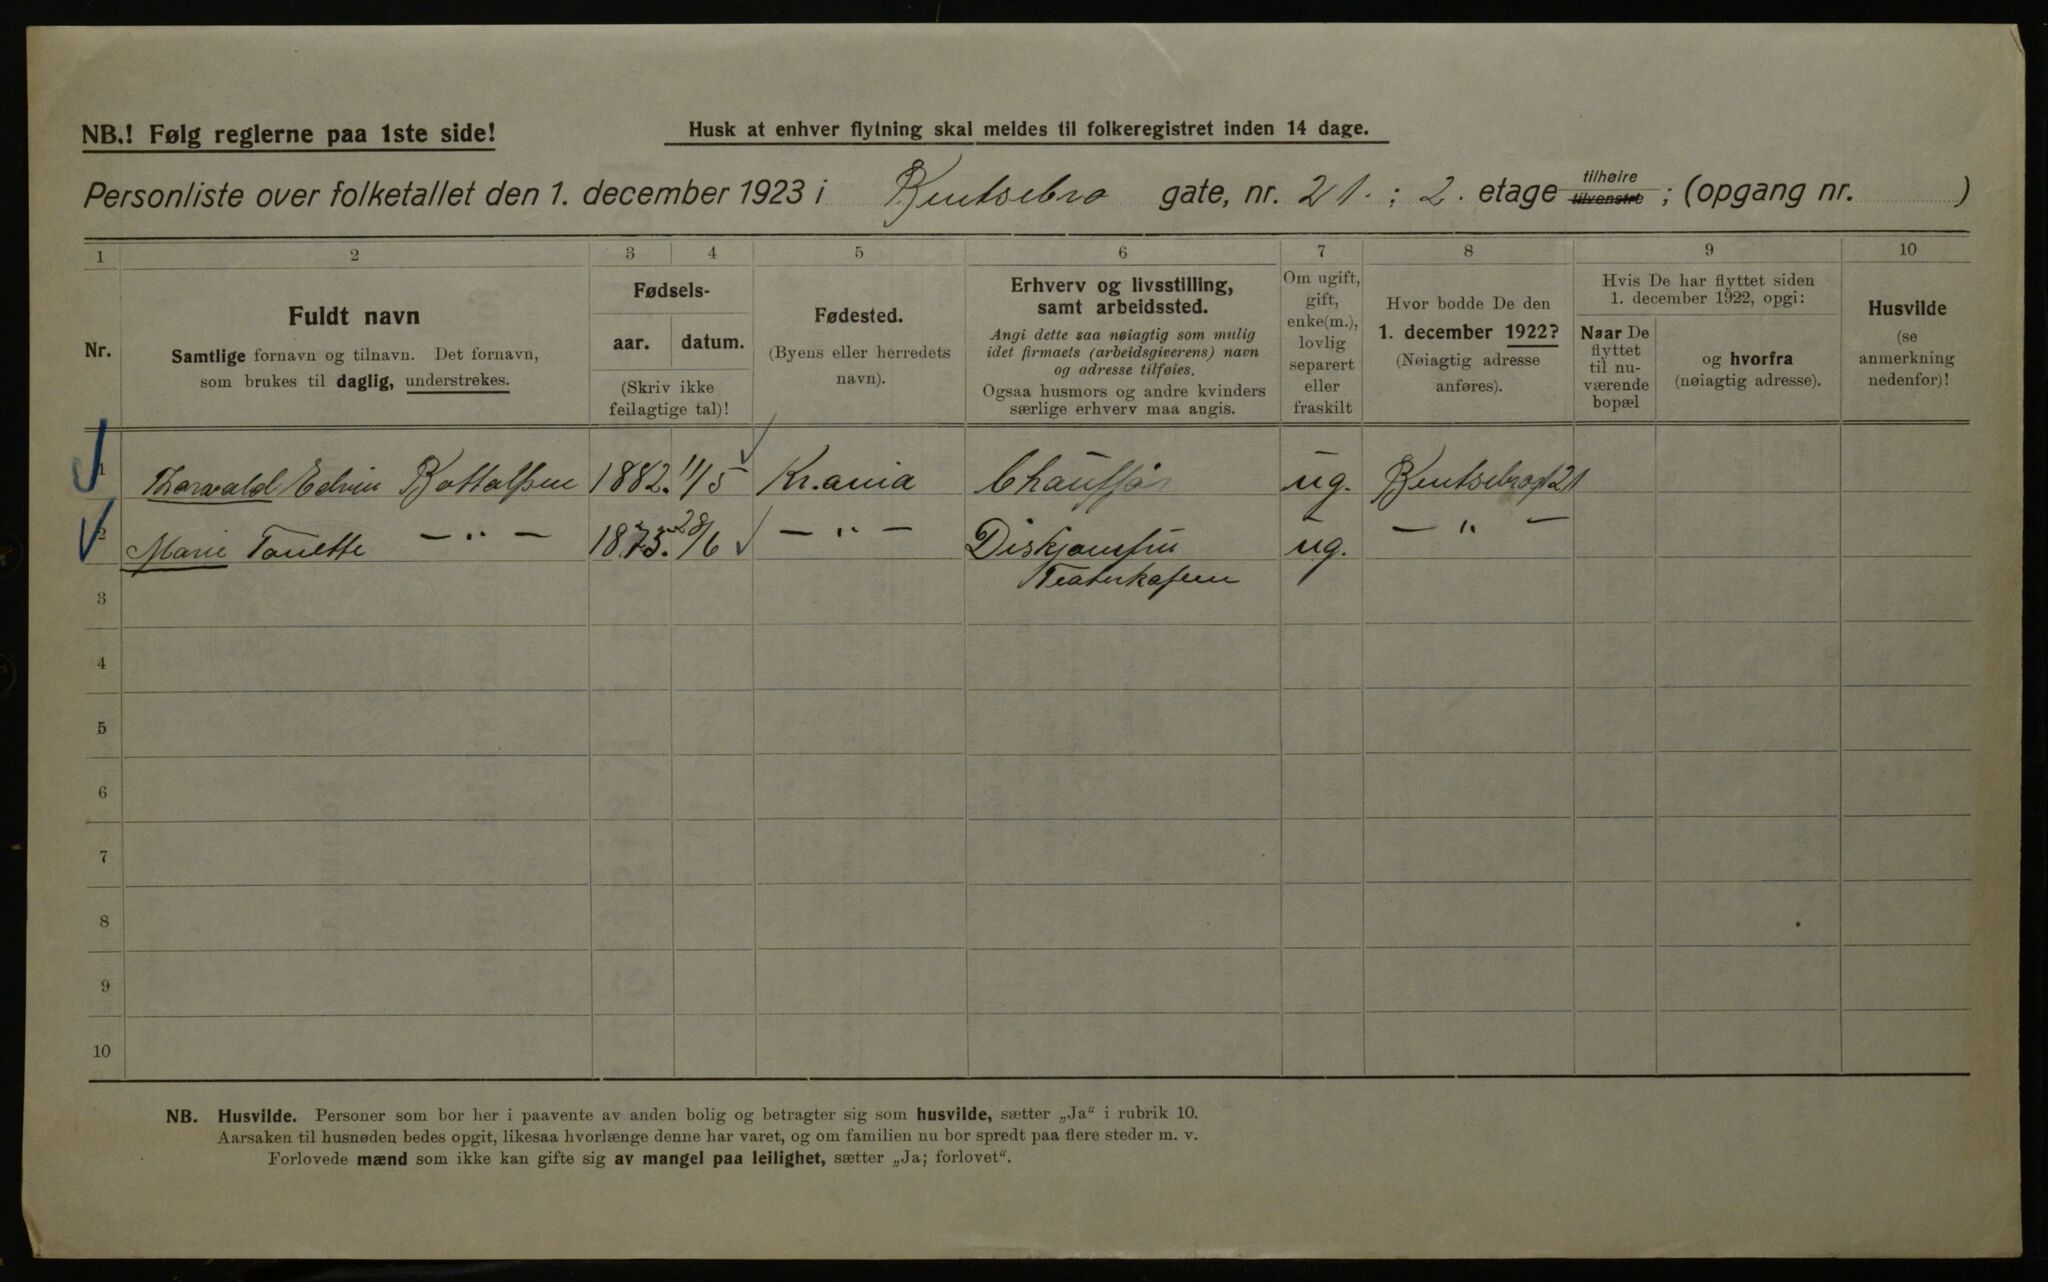 NB.! Følg reglerne paa 1ste side!
Husk at enhver flytning skal meldes til folkeregistret inden 14 dage.
Personliste over folketallet den 1. december 1923 i Bentsebro gate, nr. 21. ; 2. etage tilhøire tilvenstre ; (opgang nr. )
1 2 3 4 5 6 7 8 9 10
Nr.
Fuldt navn
Samtlige fornavn og tilnavn. Det fornavn,
som brukes til daglig, understrekes.
Fødsels-
aar. datum.
(Skriv ikke
feilagtige tal)!
Fødested.
(Byens eller herredets
navn).
Erhverv og livsstilling,
samt arbeidssted.
Angi dette saa nøiagtig som mulig
idet firmaets (arbeidsgiverens) navn
og adresse tilføies.
Ogsaa husmors og andre kvinders
særlige erhverv maa angis.
Om ugift,
gift,
enke(m.),
lovlig
separert
eller
fraskilt
Hvor bodde De den
1. december 1922?
(Nøiagtig adresse
anføres).
Hvis De har flyttet siden
1. december 1922, opgi:
Naar De
flyttet
til nu-
værende
bopæl
og hvorfra
(nøiagtig adresse).
Husvilde
(se
anmerkning
nedenfor)!
1 Thorvald Edvin Bottolfsen 1882. 11/5 Kr.ania Chauffør ug. Bentsebrogt 21
2 Marie Tonette — " — 1873. 28/6 — " — Diskjomfru ug. — " —
Teaterkafeen
3
4
5
6
7
8
9
10
NB. Husvilde. Personer som bor her i paavente av anden bolig og betragter sig som husvilde, sætter „Ja“ i rubrik 10.
Aarsaken til husnøden bedes opgit, likesaa hvorlænge denne har varet, og om familien nu bor spredt paa flere steder m. v.
Forlovede mænd som ikke kan gifte sig av mangel paa leilighet, sætter „Ja; forlovet“.